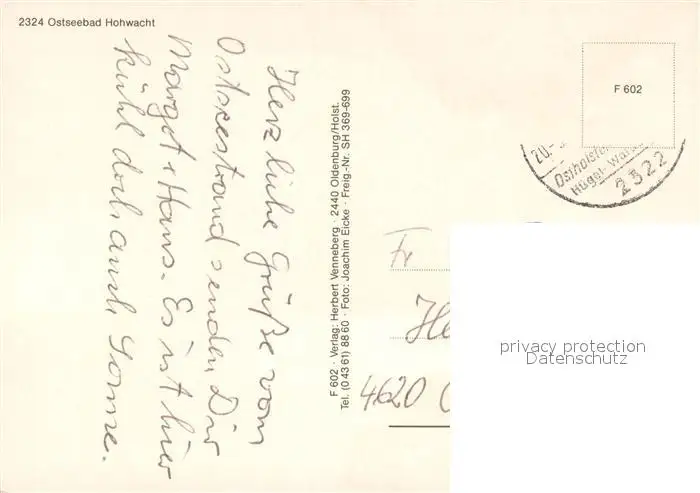 2324 Ostseebad Hohwacht
Herzliche Grüße vom
Ostseestrand senden Dir
Margot + Hans. Es ist hier
kühl doch auch Sonne.
F 602 · Verlag: Herbert Venneberg · 2440 Oldenburg/Holst.
Tel. (0 43 61) 88 60 · Foto: Joachim Eicke · Freig.-Nr. SH 369-699
F 602
20.
2322
Fr
He
4620
privacy protection
Datenschutz